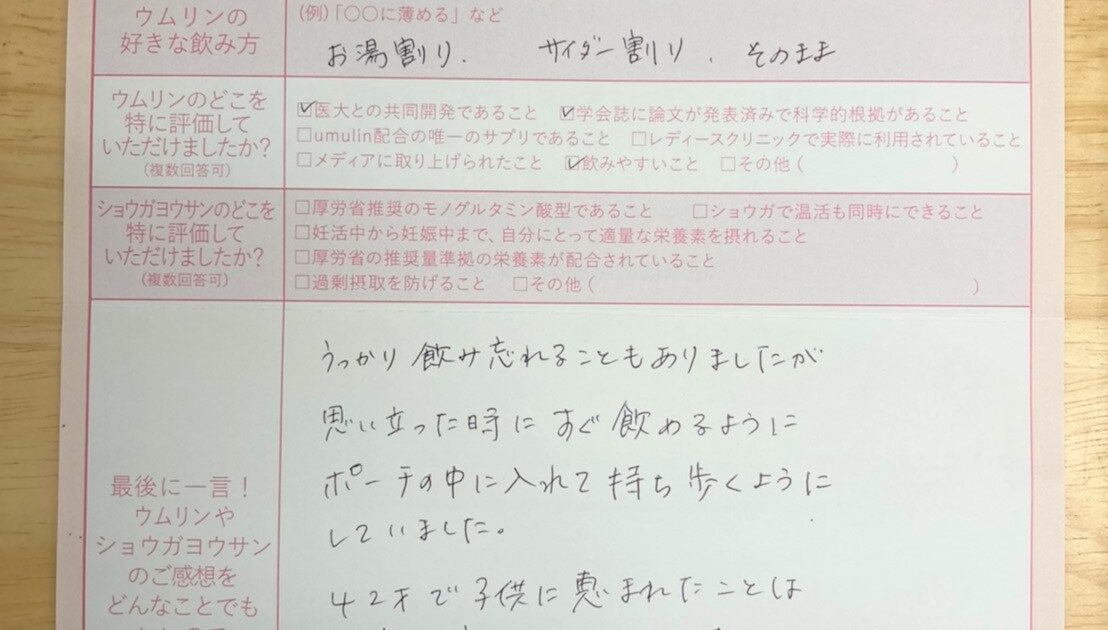 ウムリンの
好きな飲み方
(例)「〇〇に薄める」など
お湯割り. サイダー割り . そのまま
ウムリンのどこを
特に評価して
いただけましたか?
(複数回答可)
☑医大との共同開発であること ☑学会誌に論文が発表済みで科学的根拠があること
□umulin配合の唯一のサプリであること □レディースクリニックで実際に利用されていること
□メディアに取り上げられたこと ☑飲みやすいこと □その他( )
ショウガヨウサンのどこを
特に評価して
いただけましたか?
(複数回答可)
□厚労省推奨のモノグルタミン酸型であること □ショウガで温活も同時にできること
□妊活中から妊娠中まで、自分にとって適量な栄養素を摂れること
□厚労省の推奨量準拠の栄養素が配合されていること
□過剰摂取を防げること □その他( )
最後に一言!
ウムリンや
ショウガヨウサン
のご感想を
どんなことでも
うっかり飲み忘れることもありましたが
思い立った時にすぐ飲めるように
ポーチの中に入れて持ち歩くように
していました。
42才で子供に恵まれたことは